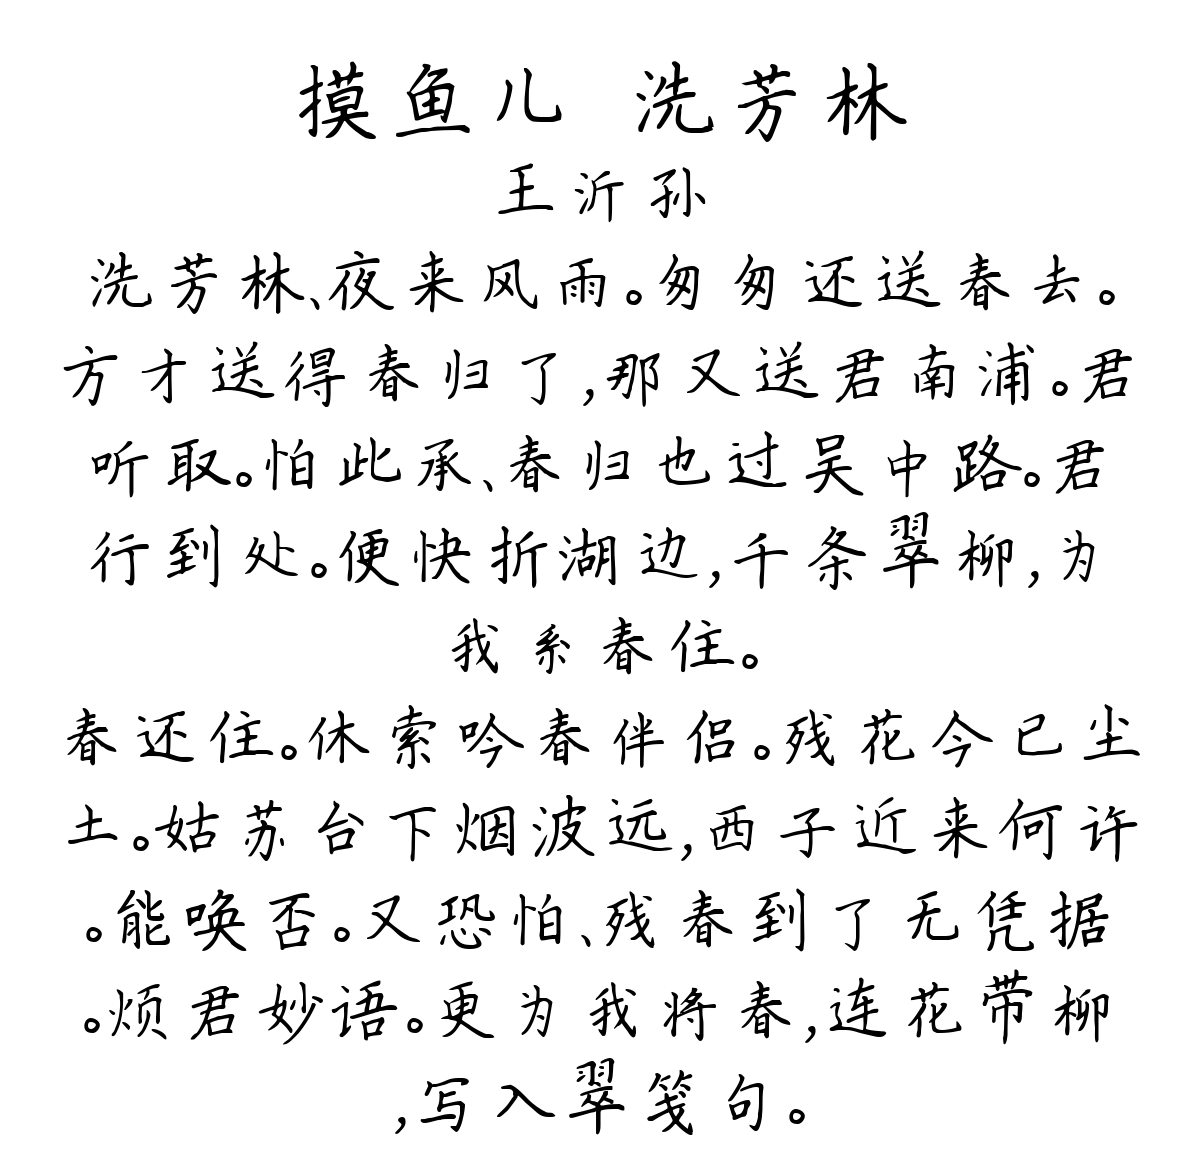 摸鱼儿 洗芳林
王沂孙
洗芳林、夜来风雨。匆匆还送春去。
方才送得春归了,那又送君南浦。君
听取。怕此承、春归也过吴中路。君
行到处。便快折湖边,千条翠柳,为
我系春住。
春还住。休索吟春伴侣。残花今已尘
土。姑苏台下烟波远,西子近来何许
。能唤否。又恐怕、残春到了无凭据
。烦君妙语。更为我将春,连花带柳
,写入翠笺句。